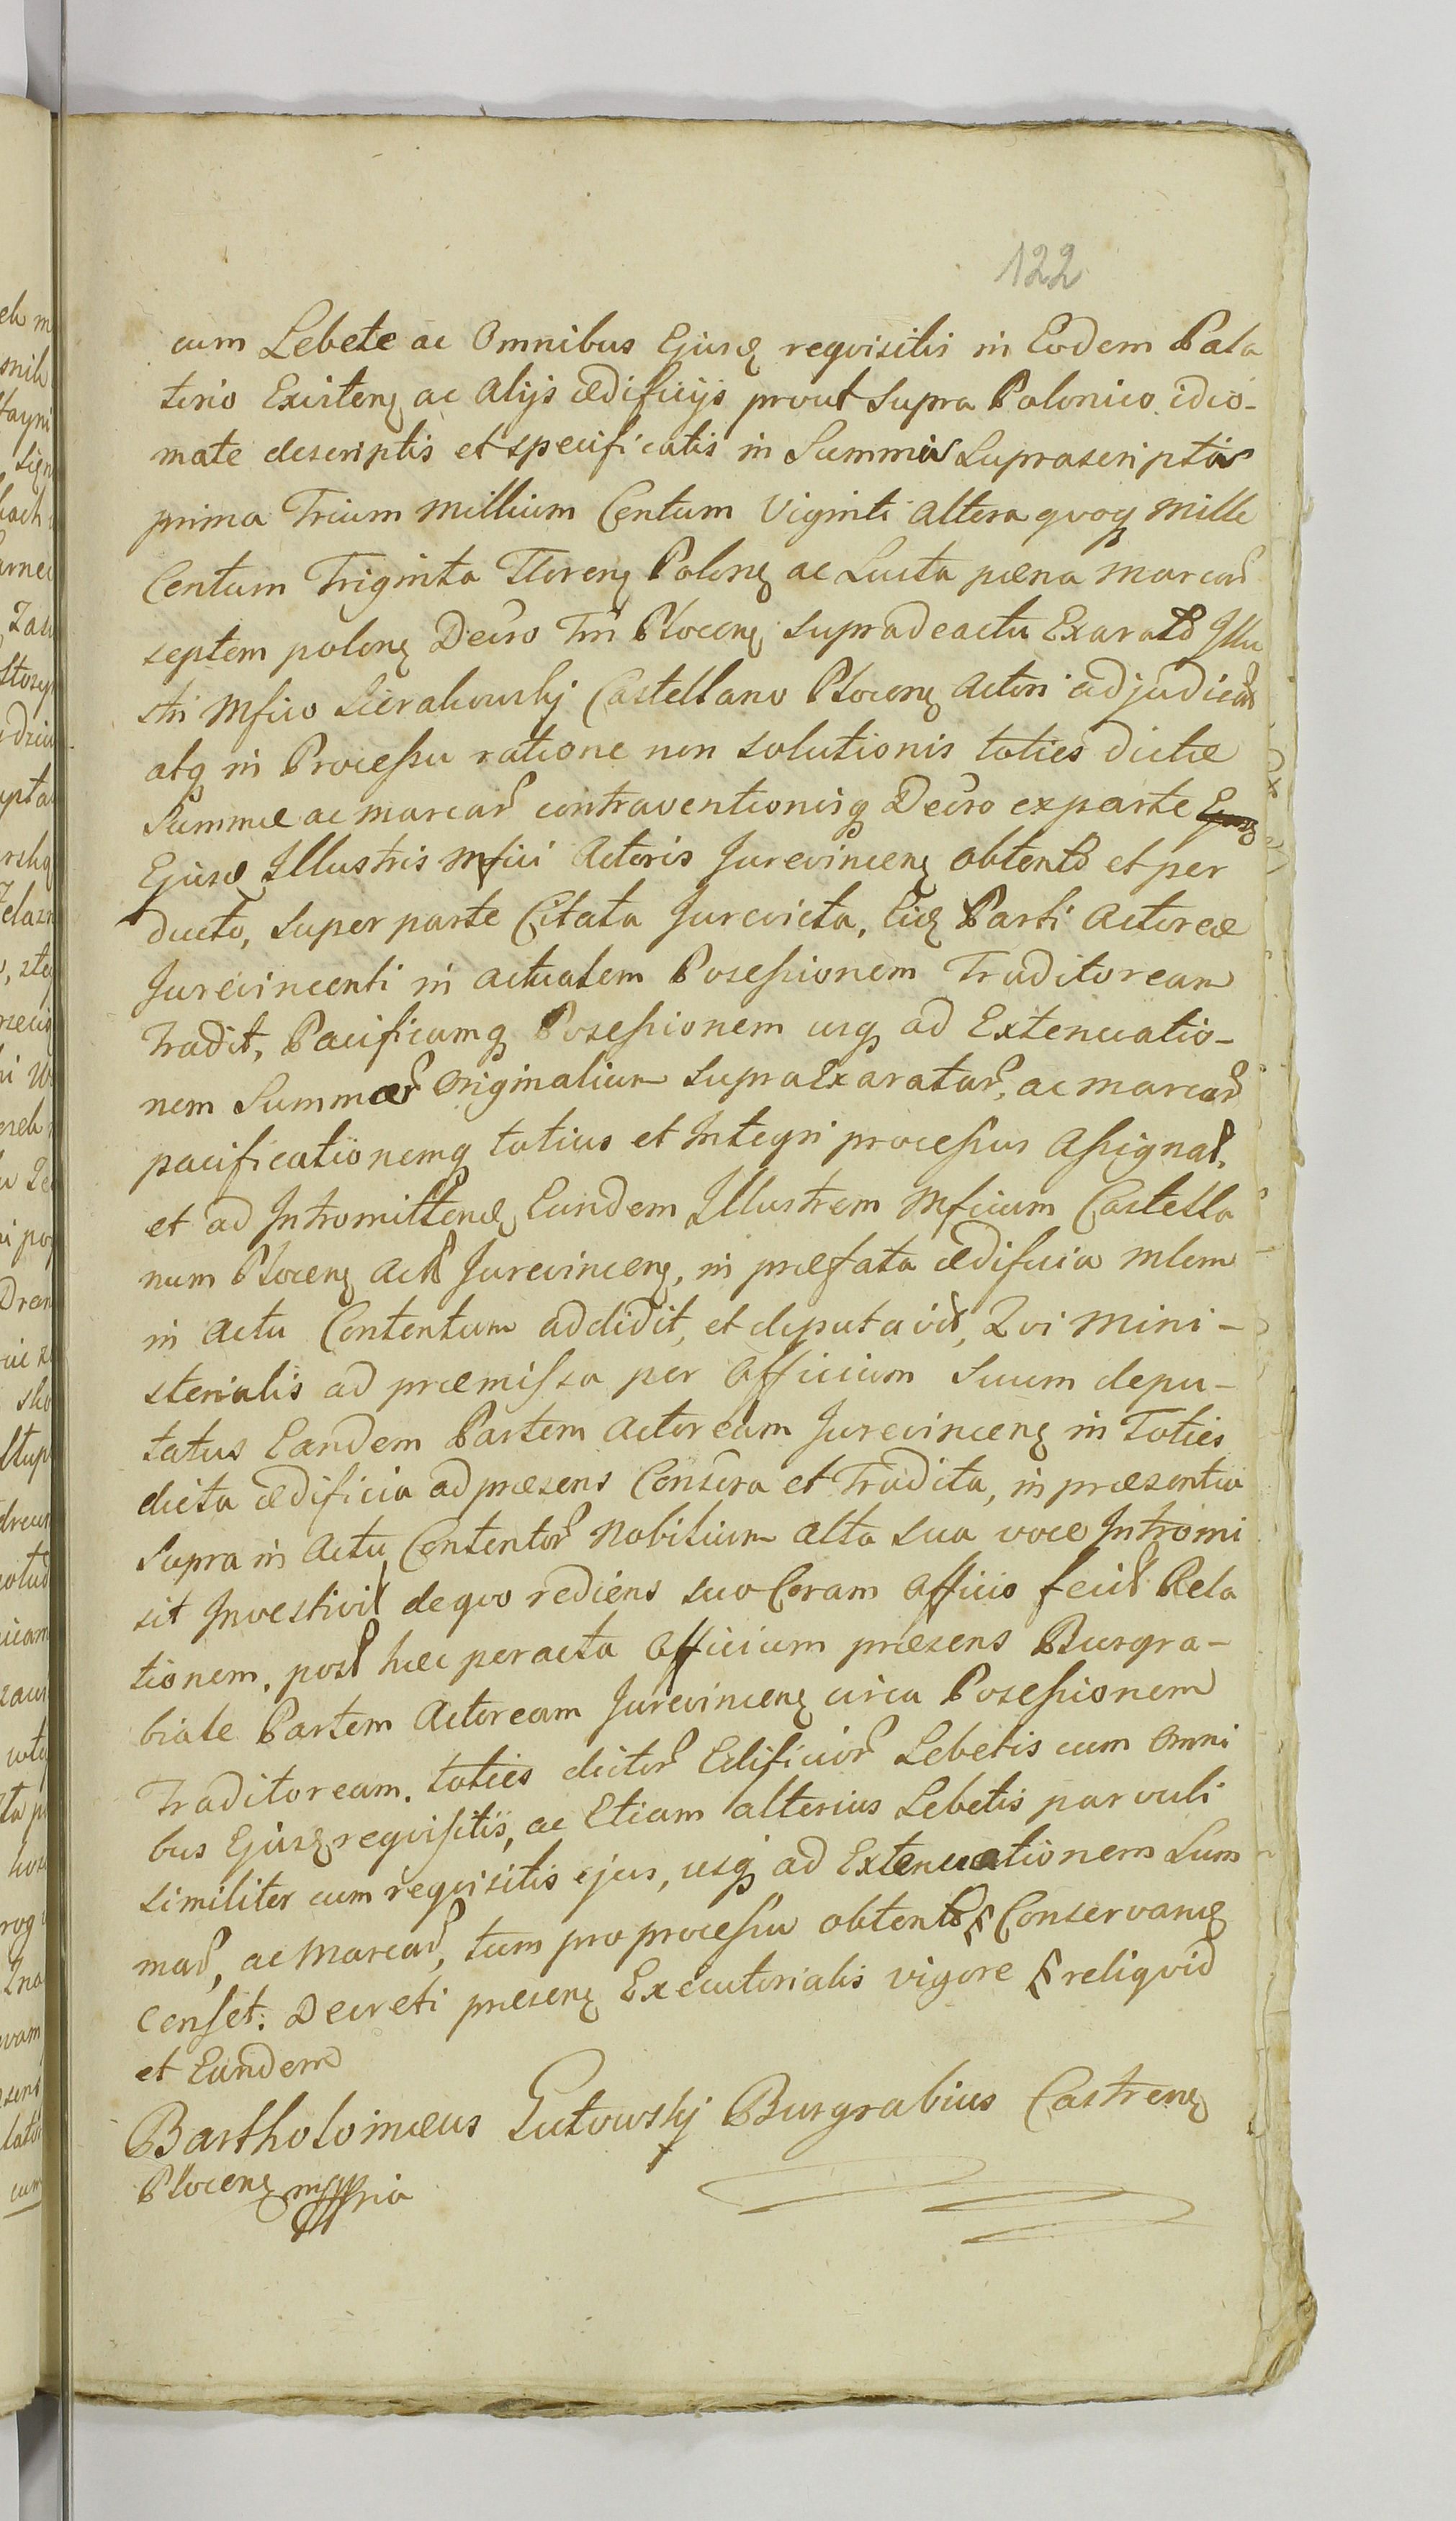 122
cum Lebete ac Omnibus Ejusꝗ reqvisitis in Eodem Pala
torio Existenꝗ ac Alijs ædificijs prout Supra Polonico idio-
mate descriptis et specificatis in Summis Suprascriptis
prima Trium Millium Centum Viginti Altera qvoqꝫ Mille
Centum Triginta Florenꝗ Polonꝗ ac Lucta pæna Marcar
septem polonꝗ Decro Tri Plocenꝗ supradeactu Exarato Illu
stri Mfico Sierakowskj Castellano Plocenꝗ Actori adjudicat
atqꝫ in Processu ratione non solutionis toties dictæ
Summæ ac marcar contraventionisqꝫ Decro exparte
Ejusd Illustris Mfici Actoris Jurevincenꝗ obtento et per
ducto, Super parte Citata Jurevicta, Eidꝗ Parti Actoreæ
Jurevincenti in actualem Posessionem Traditoream
Tradit, Pacificamqꝫ Posessionem usqꝫ ad Extenuatio-
nem Summar Originalium Supra Exaratar, ac marcar
pacificationemqꝫ totius et Integri processus Assignat,
et ad Intromittendꝗ Eundem Illustrem Mficum Castella
num Plocenꝗ Act Jurevincenꝗ, in præfata ædificia mlem
in actu Contentum addidit, et deputavit, Qvi Mini-
sterialis ad præmissa per Officium Suum depu-
tatus Eandem Partem Actoream Jurevincenꝗ in Toties
dicta ædificia ad præsens Censera et Tradita, in præsentia
Supra in Actu Contentor Nobilium alta sua voce Intromi
sit Investivit de qvo rediens suo Coram Officio fecit Rela
tionem, post hæc peracta Officium præsens Burgra-
biale Partem Actoream Jurevincenꝗ circa Posessionem
Traditoream, toties dictor Edificior Lebetis cum Omni
bus Ejusꝗ reqvisitis, ac Etiam alterius Lebetis parvuli
similiter cum reqvisitis ejus, usqꝫ ad Extenuationem Sum
mar, ac Marcar, tum pro processu obtento Conservandꝗ
Censet. Decreti præsenꝗ Executorialis vigore reliqvid
et Eundem
Bartholomæus Gutowskj Burgrabius Castrenꝗ
Plocenꝗ mppria